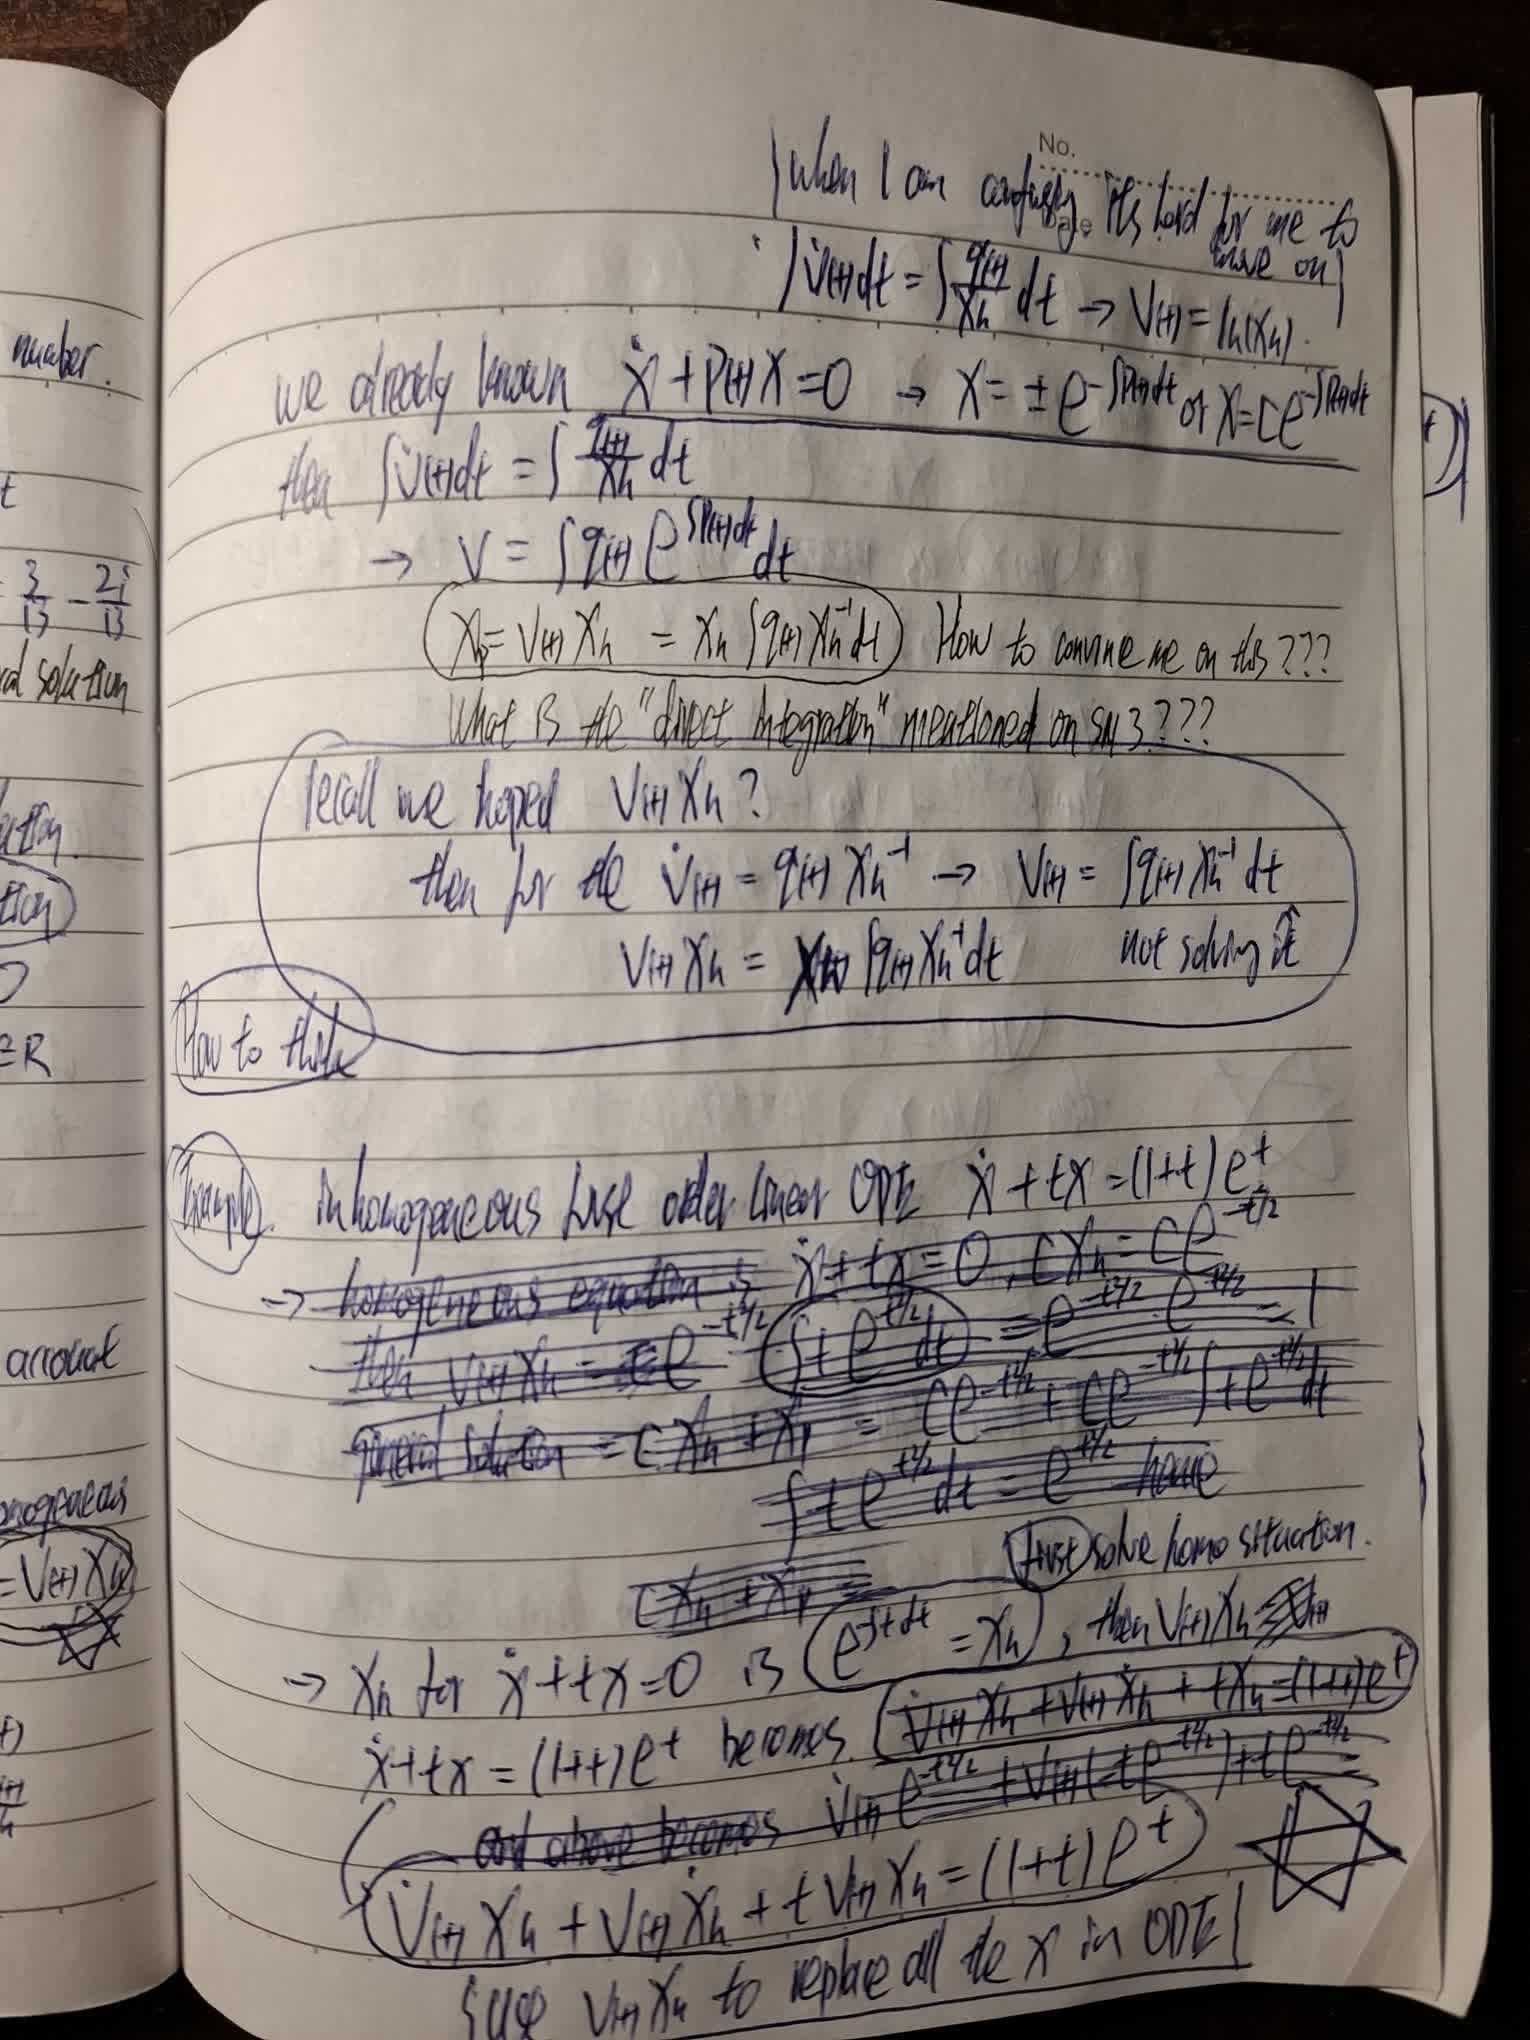 No.
when I am confusing, it's hard for me to
move on
∫v̇(t)dt = ∫q(t)/Xh dt → V(t) = ln(Xh).
we already known ẋ + P(t)X = 0 → X = ± e^-∫P(t)dt or X = Ce^-∫P(t)dt
then ∫v̇(t)dt = ∫ q(t)/Xh dt
→ V = ∫q(t) e^∫P(t)dt dt
Xp = V(t) Xh = Xh ∫q(t) Xh^-1 dt How to convince me on this ???
What is the "direct integration" mentioned on SN 3 ???
recall we hoped V(t) Xh ?
then for the v̇(t) = q(t) Xh^-1 → V(t) = ∫q(t) Xh^-1 dt
V(t) Xh = Xh ∫q(t) Xh^-1 dt not solving it
How to think
Example. inhomogeneous first order linear ODE ẋ + tx = (1+t)e^t
→ homogeneous equation is ẋ + tx = 0, CXh = Ce^-t²/2
then V(t) Xh = e^-t²/2 ∫te^t²/2 dt = e^-t²/2 e^t²/2 = 1
general solution = C Xh + Xp = Ce^-t²/2 + Ce^-t²/2 ∫te^t²/2 dt
∫te^t²/2 dt = e^t²/2 hence
first solve homo situation.
CXh + Xp =
→ Xh for ẋ + tx = 0 is e^-∫t dt = Xh, then V(t) Xh
ẋ + tx = (1+t)e^t becomes v̇(t) Xh + V(t) Ẋh + tXh = (1+t)e^t
and above becomes v̇(t) e^-t²/2 + V(t)(-te^-t²/2) + te^-t²/2 =
v̇(t) Xh + V(t) Ẋh + t V(t) Xh = (1+t)e^t
use V(t) Xh to replace all the X in ODE
number.
t
3/13 - 2i/13
solution
tion
∈R
= V(t) Xh